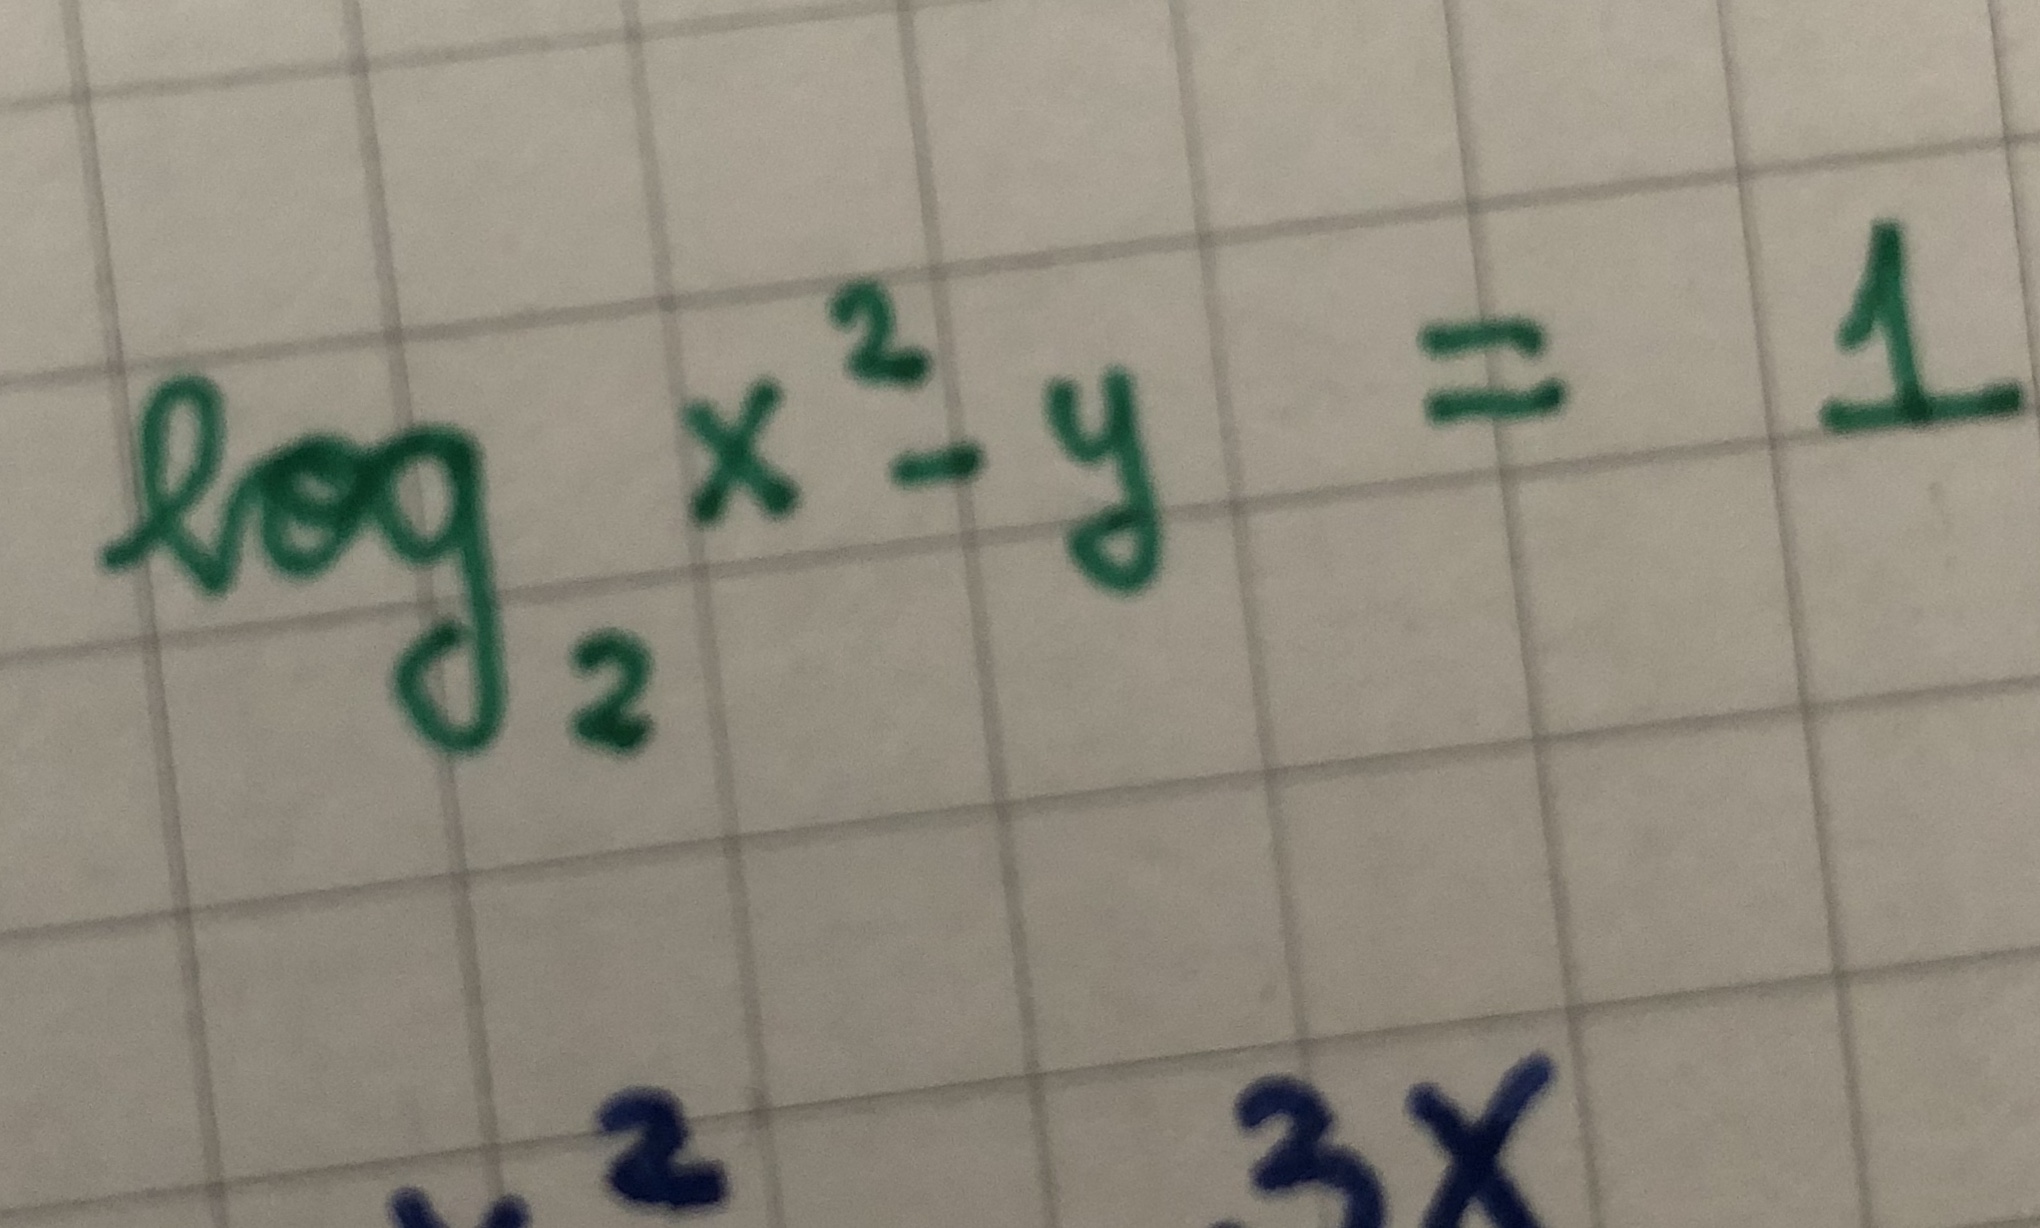 log₂ x² - y = 1
x² 3x